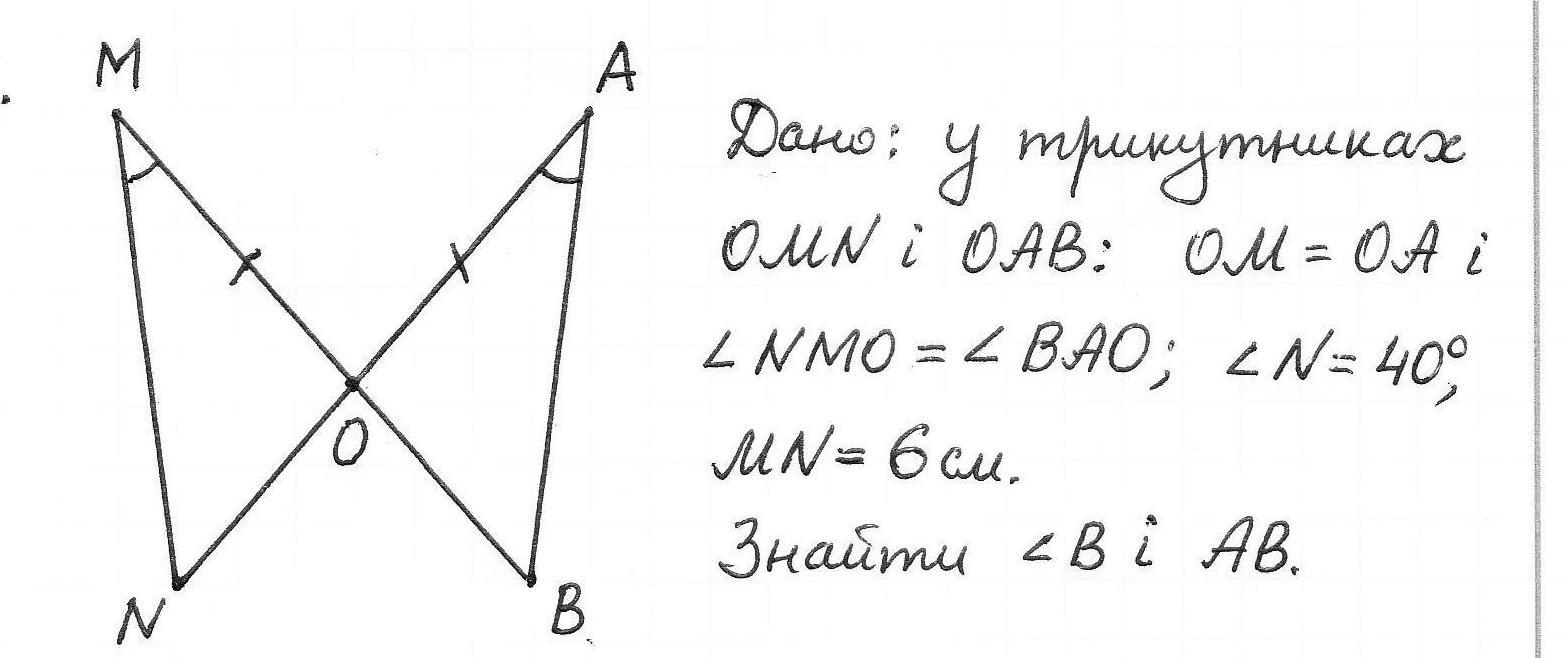 M A
Дано: у трикутниках
OMN і OAB: OM = OA і
∠NMO = ∠BAO; ∠N = 40°,
O
MN = 6 см.
Знайти ∠B і AB.
N B